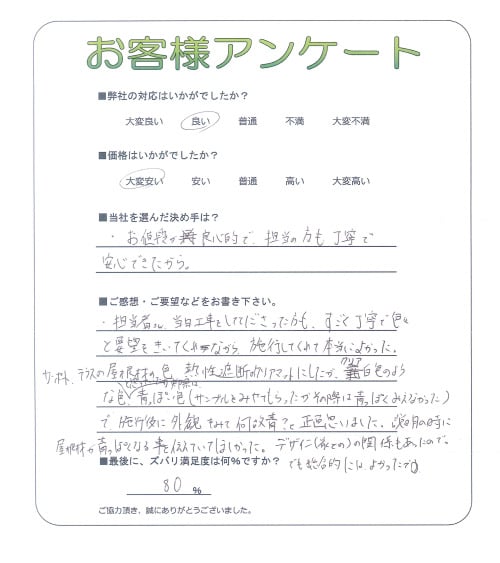 お客様アンケート
■弊社の対応はいかがでしたか？
大変良い 良い 普通 不満 大変不満
■価格はいかがでしたか？
大変安い 安い 普通 高い 大変高い
■当社を選んだ決め手は？
・お値段が良心的で、担当の方も丁寧で
安心できたから。
■ご感想・ご要望などをお書き下さい。
・担当者さん、当日工事をしてくださった方も、すごく丁寧で色々
と要望をきいてくれながら、施行してくれて本当によかった。
カーポート、テラスの屋根材の色、熱性遮断のクリアマットにしたが、クリア白色のよう
な色 青っぽい色(サンプルをみせてもらったがその際は青っぽくみえなかった)
で施行後に外観をみて何故青？と正直思いました。説明の時に
屋根材が青っぽくなる事を伝えていてほしかった。デザイン(家との)の関係もあったので。
でも総合的にはよかったです
■最後に、ズバリ満足度は何%ですか？
80 %
ご協力頂き、誠にありがとうございました。